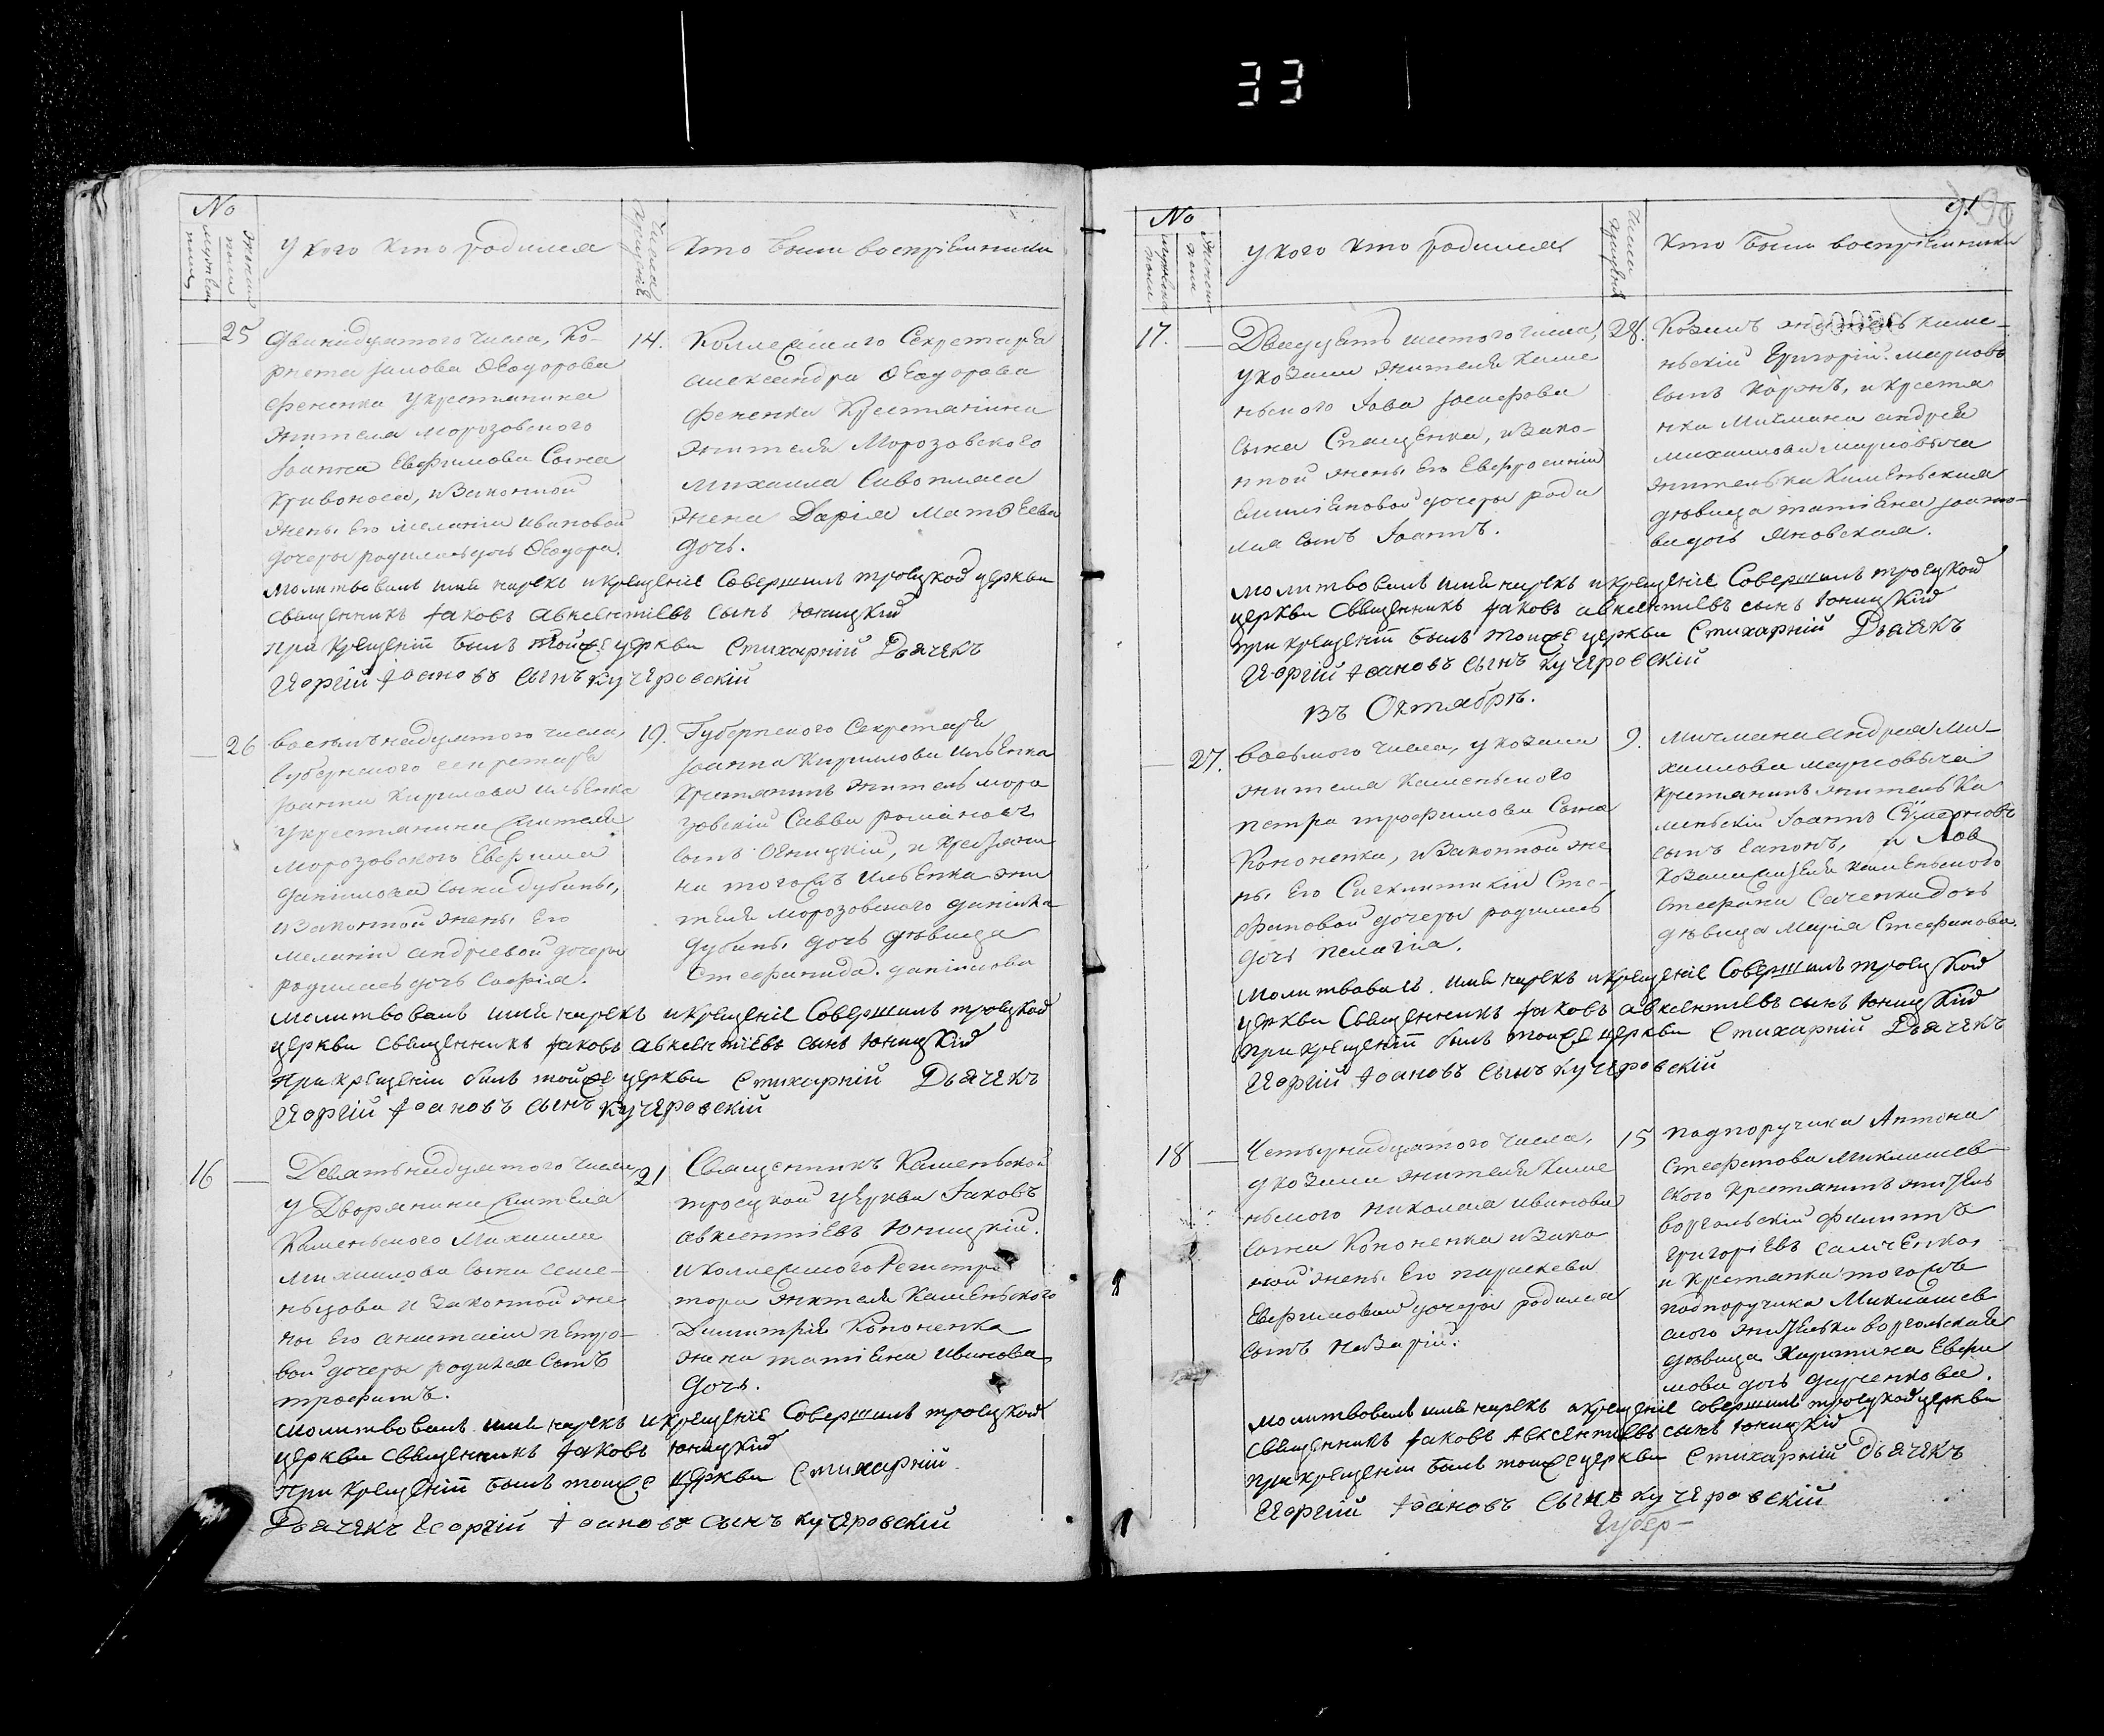 33
No
мужеска пола
женска пола
У кого кто родился
Число крещенія
Кто были воспріемники
25
Двенадцятого числа, Ко-
рнета Іакова Ѳеодорова
Фененка у крестянина
жителя морозовского
Іоанна Евфимова Сына
Кривоноса, и Законной
жены его меланіи ивановой
дочеры родилась дочь Ѳеодора.
14.
Коллежского Секретаря
александра Ѳеодорова
Фененка Крестянина
жителя Морозовского
михаила Сивопляса
жена Дарія Матѳеева
дочь.
молитвовалъ имя нарекъ и крещеніе Совершилъ троецкой церкви
священникъ Іаковъ авксентіевъ сынъ Юницкій
при крещеніи былъ тойже церкви Стихарній Дьячекъ
Георгій Іоановъ Сынъ кучеровскій
26
восемьнадцятого числа,
Губернского секретаря
Іоанна Кирилова ильенка
у крестянина жителя
морозовского Евфима
данилова сына дубины,
и Законной жены его
меланіи андреевой дочеры
родилась дочь Софія.
19.
Губернского Секретаря
Іоанна Кирилова ильенка
крестянинъ житель моро
зовскій Савва романовъ
сынъ Огницкій, и крестяни
на тогожъ ильенка жи
теля морозовского данила
дубины дочь дѣвица
Стефанида данилова
молитвовалъ имя нарекъ и крещеніе Совершилъ троецкой
церкви священникъ Іаковъ авксентіевъ сынъ Юницкій
при крещеніи былъ тойже церкви Стихарній Дьячекъ
Георгій Іоановъ сынъ кучеровскій
16
Девятьнадцятого числа
у Дворянина жителя
Каменьского Михаила
михаилова сына семе-
нцова и законной же
ны его анастасіи петро-
вой дочеры родился сынъ
трофимъ.
21
Священникъ Каменьской
троецкой церкви Іаковъ
авксентіевъ Юницкій.
и коллежского Регистра
тора жителя Каменьского
Димитрія Кононенка
жена татіана иванова
дочь.
молитвовалъ имя нарекъ и крещеніе Совершилъ троецкой
церкви священникъ Іаковъ Юницкій
при крещеніи былъ тойже церкви Стихарній
Дьячекъ Георгій Іоановъ сынъ кучеровскій
91
No
мужеска пола
женска пола
у кого кто родился
Число крещенія
кто были воспріемники
17.
Двадцять шестого числа,
у козака жителя каме
ньского Іова Іосифова
сына Спащенка, и Зако-
нной жены его Евфросиніи
емиліановой дочеры роди
лся сынъ Іоаннъ.
28.
Козакъ житель каме-
ньскій Григорій марковъ
сынъ коржъ, и крестя
нка Мичмана андрея
михаилова марковыча
жителька Каменьская
дѣвица татіана Іоанно-
ва дочь Яновская.
молитвовалъ имя нарекъ и крещеніе Совершилъ троецкой
церкви Священникъ Іаковъ авксентіевъ сынъ Юницкій
при крещеніи былъ тойже церкви Стихарній Дьячекъ
Георгій Іоановъ сынъ кучеровскій
Въ Октябрѣ.
27.
восьмого числа, у козака
жителя каменьского
петра трофимова Сына
Кононенка, и Законной же
ны его Сигклитикіи Сте-
фановой дочеры родилась
дочь пелагіа.
9.
мичмана андрея Ми-
хаилова марковыча
крестянинъ житель Ка
меньскій Іоаннъ
сынъ сапонъ,
козака жителя каменьского
Стефана Саченка дочь
дѣвица Марія Стефанова.
молитвовалъ имя нарекъ и крещеніе Совершилъ троецкой
церкви Священникъ Іаковъ авксентіевъ сынъ Юницкій
при крещеніи былъ тойже церкви Стихарній Дьячекъ
Георгій Іоановъ сынъ кучеровскій
18
Четырнадцятого числа,
у козака жителя каме
ньского николая иванова
сына Кононенка и Зако
нной жены его параскевы
Евфимовой дочеры родился
сынъ назарій.
15
подпоручика Антона
Стефанова Миклашев
ского крестянинъ житель
воргольскій филиппъ
григоріевъ саличенко,
и крестянка тогожъ
подпоручика Миклашев
ского жителька воргольская
дѣвица Харитина Евфи
мова дочь дяченкова.
молитвовалъ имя нарекъ и крещеніе совершилъ троецкой церкви
священникъ Іаковъ Авксентіевъ сынъ Юницкій
при крещеніи былъ тойже церкви Стихарній дьячекъ
Георгій Іоановъ сынъ кучеровскій
Губер-